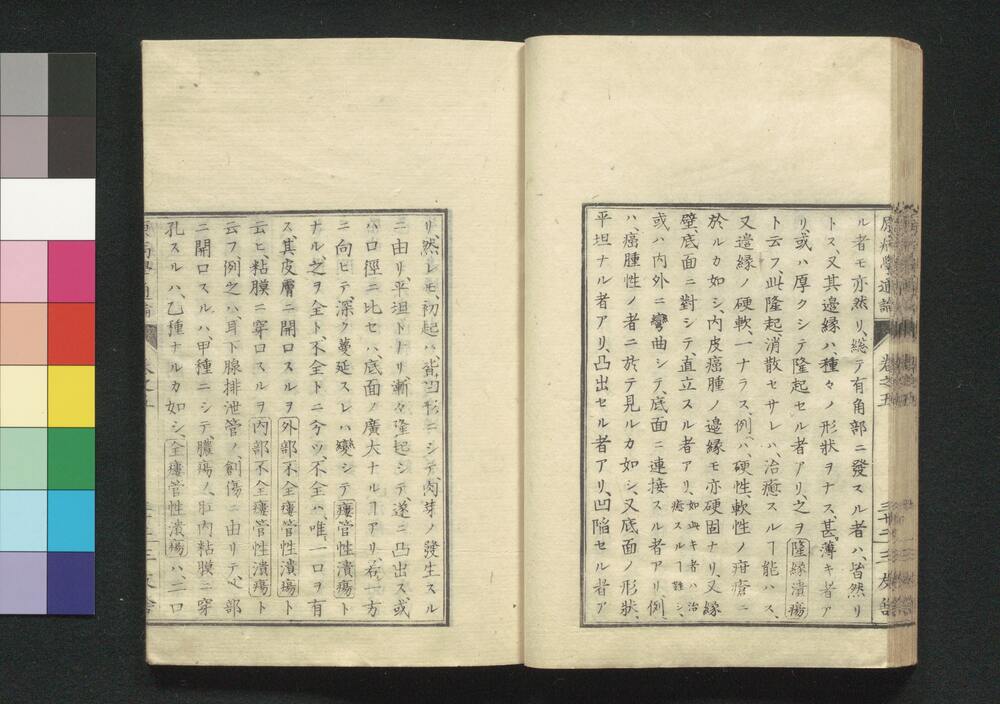 ル者モ亦然リ、総テ有角部ニ發スル者ハ、皆然リ
トス、又其邉縁ハ、種々ノ形狀ヲナス、甚薄キ者ア
リ、或ハ厚クシテ隆起セル者アリ、之ヲ隆縁潰瘍
ト云フ、此隆起、消散セサレハ、治癒スルヿ能ハス、
又邉縁ノ硬軟、一ナラス、例ハ、硬性、軟性ノ疳瘡ニ
於ルカ如シ、内皮癌腫ノ邉縁モ亦硬固ナリ、又縁
壁、底面ニ對シテ、直立スル者アリ、如此キ者ハ治癒スルヿ難シ、
或ハ内外ニ彎曲シテ、底面ニ連接スル者アリ、例
ハ、癌腫性ノ者ニ於テ見ルカ如シ、又底面ノ形狀、
平坦ナル者アリ、凸出セル者アリ、凹陥セル者ア
リ、然レモ、初起ハ、皆凹形ニシテ、肉芽ノ發生スル
ニ由リ、平坦トナリ、漸々隆起シテ、遂ニ凸出ス、或
ハ口徑ニ比セハ、底面ノ廣大ナルヿアリ、若一方
ニ向ヒテ、深ク蔓延スレハ、變シテ瘻管性潰瘍ト
ナル、之ヲ全ト、不全トニ分ツ、不全ハ、唯一口ヲ有
ス、其皮膚ニ開口スルヲ外部不全瘻管性潰瘍ト
云ヒ、粘膜ニ穿口スルヲ内部不全瘻管性潰瘍ト
云フ、例之ハ、耳下腺排泄管ノ、創傷ニ由リテ、外部
ニ開口スルハ、甲種ニシテ、膿瘍ノ、肛内粘膜ニ穿
孔スルハ、乙種ナルカ如シ、全瘻管性潰瘍ハ、二口
原病學通論 卷之五